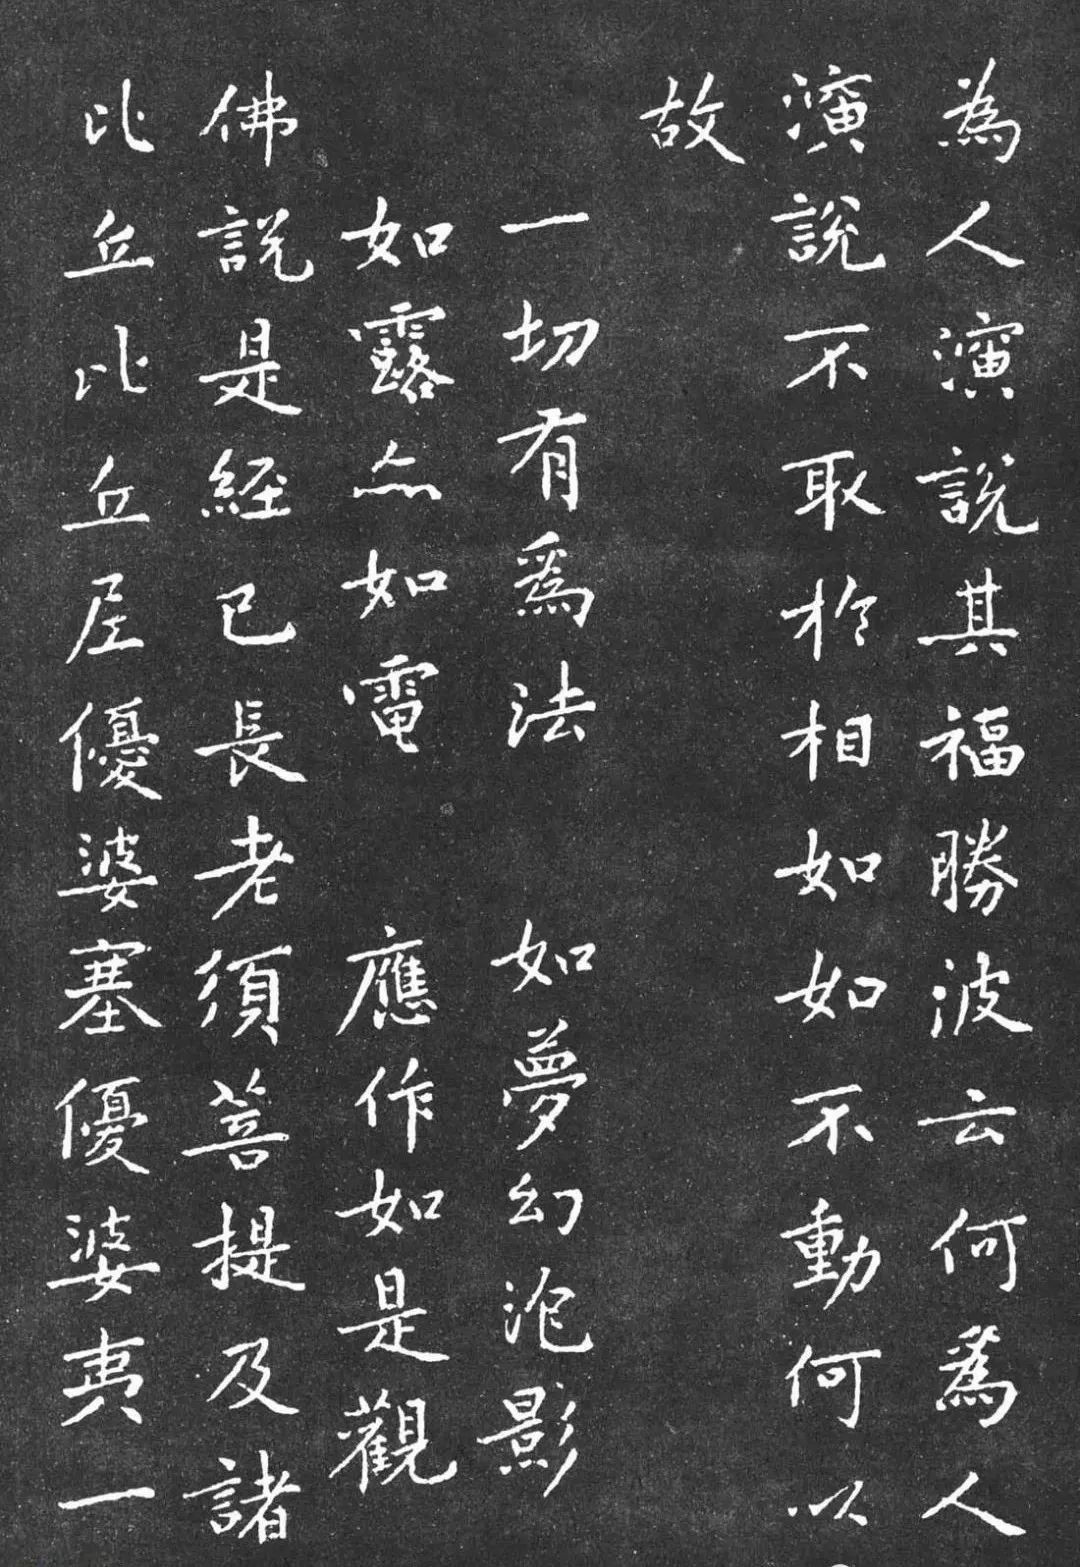 為人演說其福勝波云何爲人
演說不取於相如如不動何以
故
一切有爲法　如夢幻泡影
如露亦如電　應作如是觀
佛說是經已長老須菩提及諸
比丘比丘尼優婆塞優婆夷一